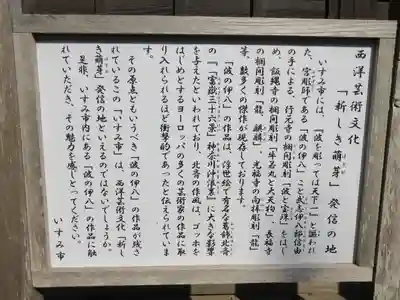 西洋芸術文化
「新しき萌芽」発信の地
ほうが
いすみ市には、「波を彫っては天下一」と謳われ
た、宮彫師である「波の伊八」こと武志伊八郎信由
の手による、行元寺の欄間彫刻「波と宝珠」をはじ
め、飯縄寺の欄間彫刻「牛若丸と大天狗」、長福寺
の欄間彫刻「龍、麒麟」、光福寺の向拝彫刻「龍」
等、数多くの傑作が現存しております。
「波の伊八」の作品は、浮世絵で有名な葛飾北斎
の「「富嶽三十六景」神奈川沖浪裏」に大きな影響
を与えたといわれており、北斎の作風は、ゴッホを
はじめとするヨーロッパの多くの芸術家の作品に取
り入れられるほど衝撃的であったと伝えられていま
す。
その原点ともいうべき「波の伊八」の作品が残さ
れているこの「いすみ市」は、西洋芸術文化「新し
き萌芽」発信の地といえるのではないでしょうか。
是非、いすみ市内にある「波の伊八」の作品に触
れていただき、その魅力を感じとってください。
いすみ市